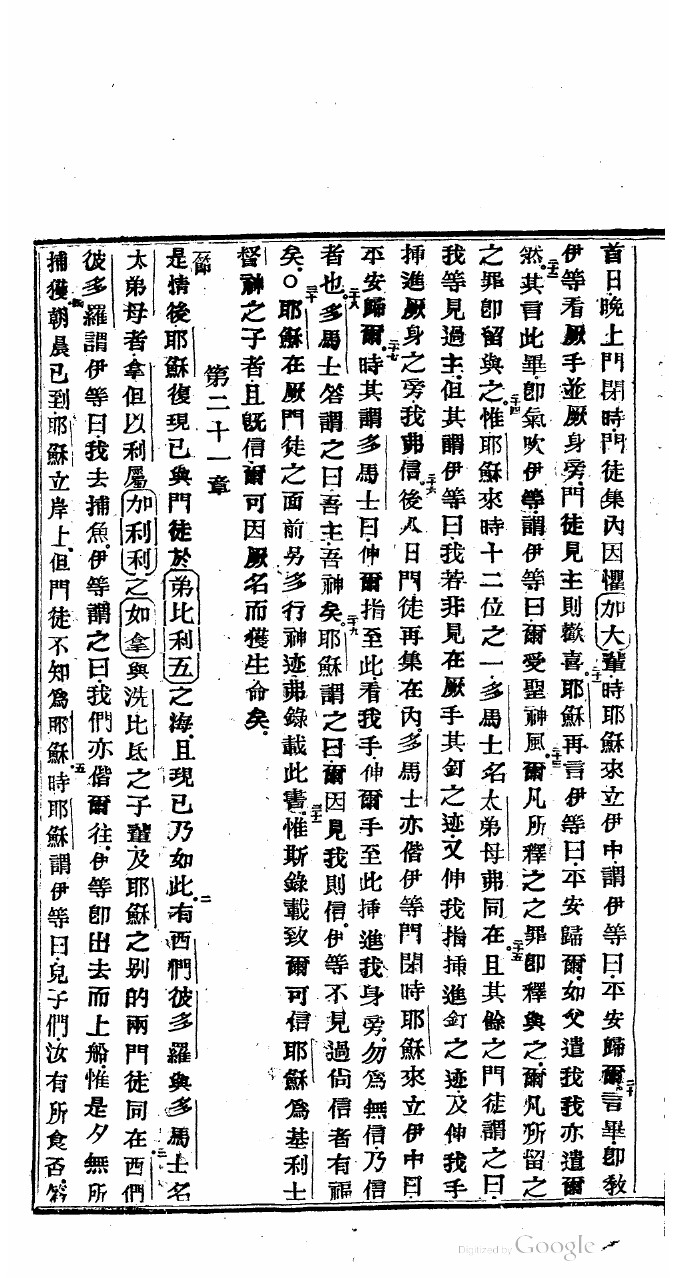 首日晚上門閉時門徒集內因懼加大輩時耶穌來立伊中謂伊等曰平安歸爾言畢卽教
伊等看厥手並厥身旁門徒見主則歡喜耶穌再言伊等曰平安歸爾如父遣我我亦遣爾
然其言此畢卽氣吹伊等謂伊等曰爾受聖神風爾凡所釋之之罪卽釋與之爾凡所留之
之罪卽留與之惟耶穌來時十二位之一多馬士名太弟母弗同在且其餘之門徒謂之曰
我等見過主但其謂伊等曰我若非見在厥手其釘之迹又伸我指揷進釘之迹及伸我手
揷進厥身之旁我弗信後八日門徒再集在內多馬士亦偕伊等門閉時耶穌來立伊中曰
平安歸爾時其謂多馬士曰伸爾指至此看我手伸爾手至此揷進我身旁勿爲無信乃信
者也多馬士答謂之曰吾主吾神矣耶穌謂之曰爾因見我則信伊等不見過尙信者有福
矣○耶穌在厥門徒之面前另多行神迹弗錄載此書惟斯錄載致爾可信耶穌爲基利士
督神之子者且旣信爾可因厥名而獲生命矣
第二十一章
是情後耶穌復現已與門徒於弟比利五之海且現已乃如此有西們彼多羅與多馬士名
太弟母者拿但以利屬加利利之如拿與洗比氐之子輩及耶穌之别的兩門徒同在西們
彼多羅謂伊等曰我去捕魚伊等謂之曰我們亦偕爾往伊等卽出去而上船惟是夕無所
捕獲朝晨已到耶穌立岸上但門徒不知爲耶穌時耶穌謂伊等曰兒子們汝有所食否答
Digitized by Google